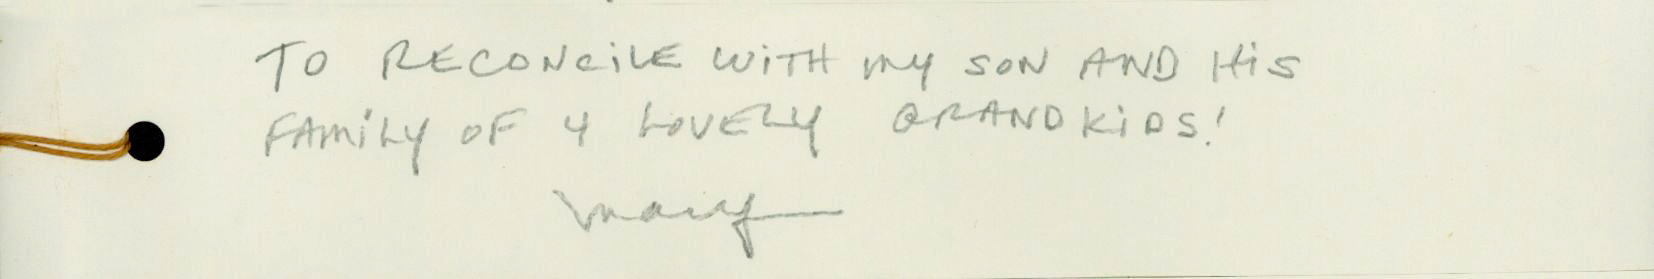 TO RECONCiLE WiTH my SON AND HiS
FAMiLY OF 4 LOVELY GRANDKiDS!
Mary